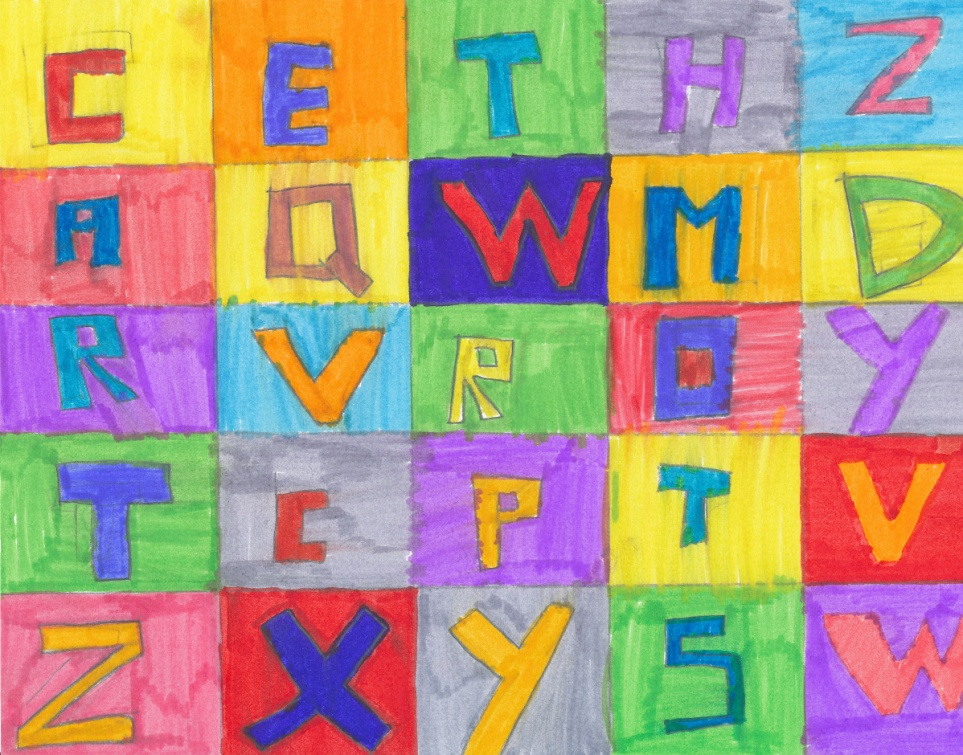 C E T H Z
A Q W M D
R V R O Y
T C P T V
Z X Y S W